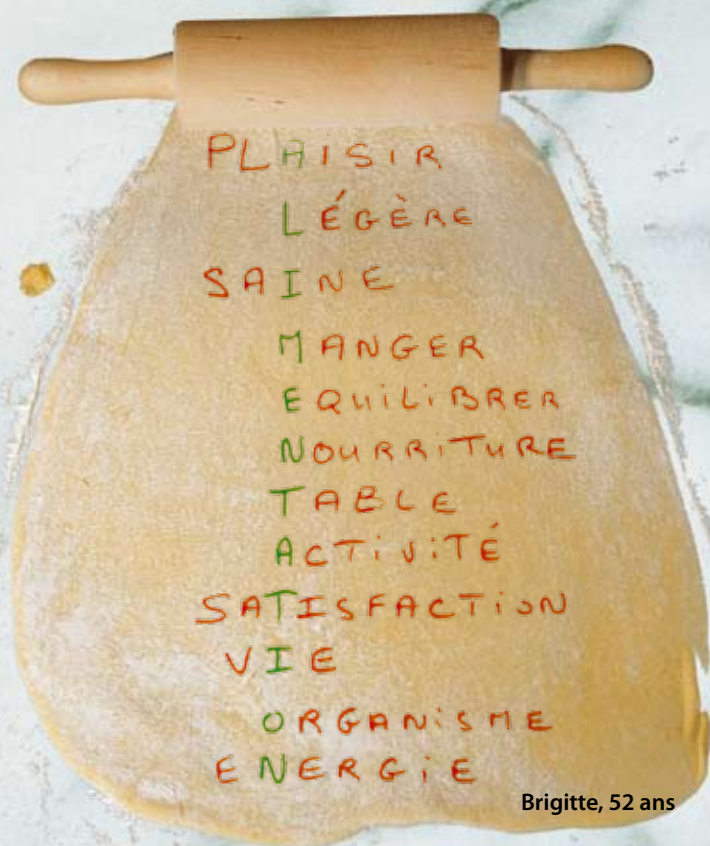 PLAISIR
LÉGÈRE
SAINE
MANGER
EQUiLiBRER
NOURRiTURE
TABLE
ACTiViTÉ
SATISFACTiON
VIE
ORGANiSME
ENERGiE
Brigitte, 52 ans